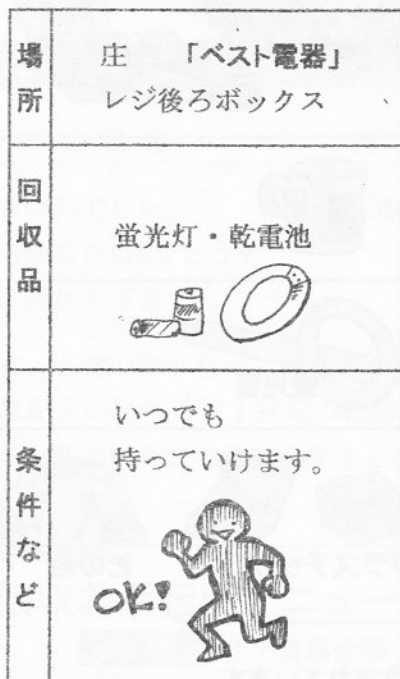 場所
庄　「ベスト電器」
レジ後ろボックス
回収品
蛍光灯・乾電池
条件など
いつでも
持っていけます。
OK!